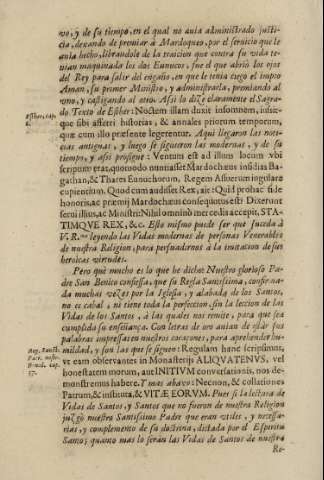 vo, y de su tiempo, en el qual no auia administrado justi-
cia, dexando de premiar à Mardoqueo, por el seruicio que le
auia hecho, librandole de la traicion que contra su vida te-
nian maquinada los dos Eunucos, fue el que abriò los ojos
del Rey para salir del engaño, en que le tenia ciego el impio
Aman, su primer Ministro, y administrarla, premiando al
vno, y castigando al otro. Assi lo dize claramente el Sagra-
Esther, cap.
do Texto de Esther: Noctem illam duxit insomnem, iussit-
que sibi afferri historias, & annales priorum temporum,
quæ cum illo præsente legerentur. Aqui llegaron las noti-
cias antiguas, y luego se siguieron las modernas, y de su
tiempo, y assi prosigue: Ventum est ad illum locum vbi
scriptum erat, quomodo nuntiasset Mardochæus insidias Ba-
gathan, & Thares Eunuchorum, Regem Assuerum iugulare
cupientium. Quod cum audisset Rex, ait: Quid pro hac fide
honoris, ac præmij Mardochæus consequutus est? Dixerunt
serui illius, ac Ministri: Nihil omninò mercedis accepit, STA-
TIMQVE REX, &c. Esto mismo puede ser que suceda à
V. R.ma leyendo las Vidas modernas de personas Venerables
de nuestra Religion, para persuadirnos à la imitacion de sus
heroicas virtudes.
Pero què mucho es lo que he dicho? Nuestro glorioso Pa-
dre San Benito confiessa, que su Regla Santissima, confirma-
da muchas vezes por la Iglesia, y alabada de los Santos,
no es cabal, ni tiene toda la perfeccion, sin la leccion de las
Vidas de los Santos, à las quales nos remite, para que sea
cumplida su enseñança. Con letras de oro auian de estar sus
palabras impressas en nuestros coraçones, para aprehender hu-
Reg. Sanct.
Patr. nostr.
Bened. cap.
mildad, y son las que se siguen: Regulam hanc scripsimus,
vt eam obseruantes in Monasterijs ALIQVATENVS, vel
honestatem morum, aut INITIVM conversationis, nos de-
monstremus habere. Y mas abaxo: Necnon, & collationes
Patrum, & instituta, & VITÆ EORVM. Pues si la lectura de
Vidas de Santos, y Santos que no fueron de nuestra Religion
juzgò nuestro Santissimo Padre que eran vtiles, y necessa-
rias, y complemento de su doctrina, dictada por el Espiritu
Santo; quanto mas lo seràn las Vidas de Santos de nuestra
Re-